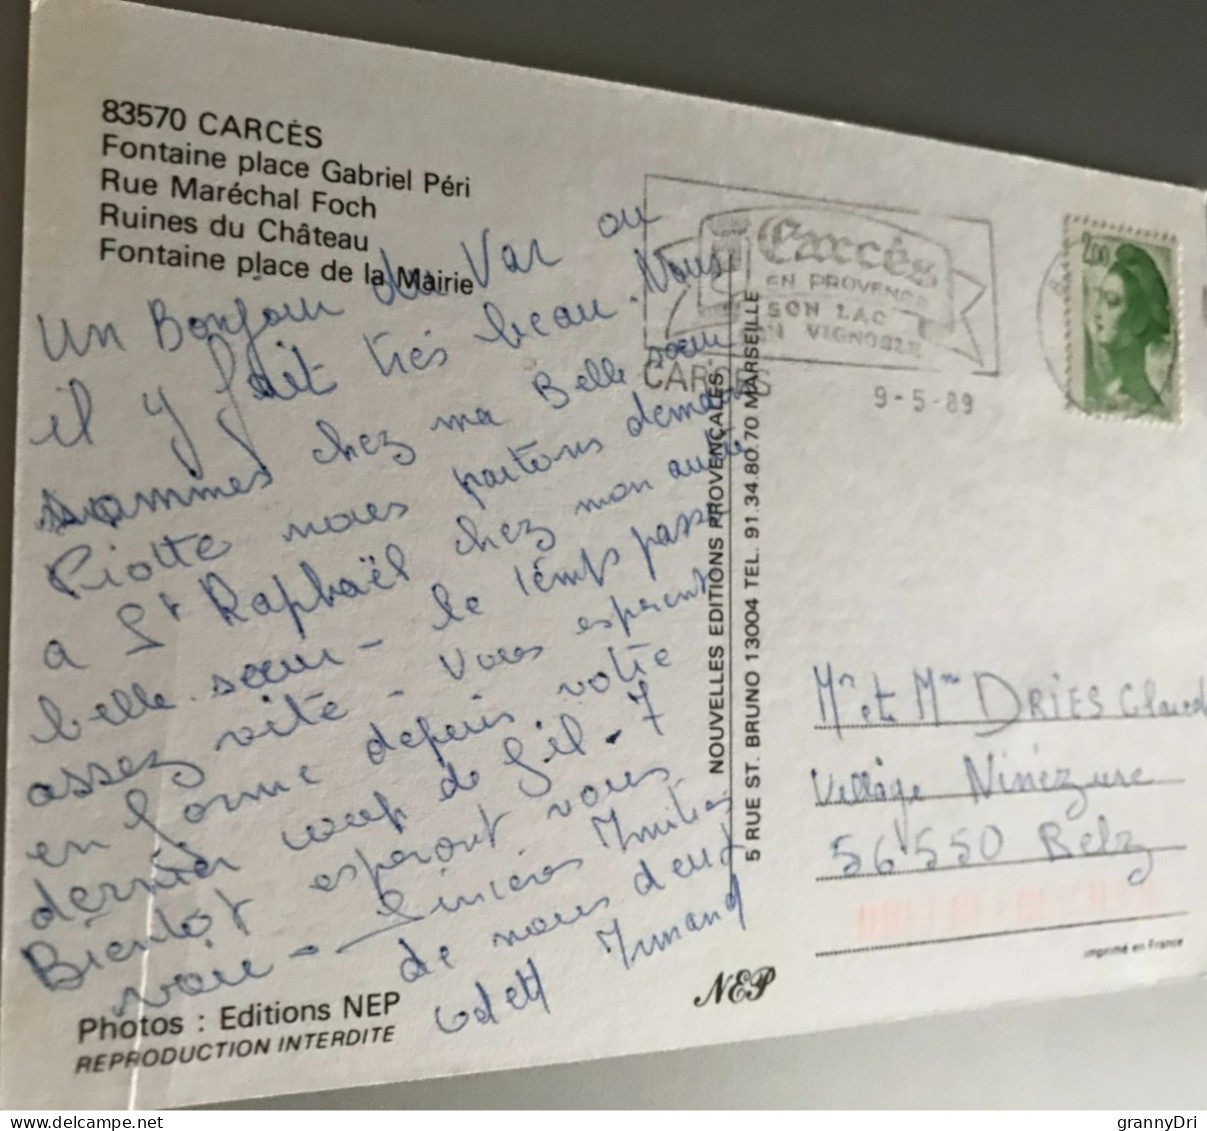 83570 CARCÈS
Fontaine place Gabriel Péri
Rue Maréchal Foch
Ruines du Château
Fontaine place de la Mairie
un Bonjour du Var ou
il y fait très beau. Nous
sommes chez ma Belle soeur
nous partons demain
a St Raphaël chez mon autre
belle soeur - le temps passe
assez vite - Vous esperent
en forme depuis votre
dernier coup de fil - 7
Bientot esperont vous
voir - Sincères
de nous deux
Odett
Photos : Editions NEP
REPRODUCTION INTERDITE
NEP
NOUVELLES EDITIONS PROVENÇALES
5 RUE ST. BRUNO 13004 TEL. 91.34.80.70 MARSEILLE
Carcès
EN PROVENCE
SON LAC
SON VIGNOBLE
CARCES
9-5-89
2,00
Mr et Mme DRIES Claude
Village Ninézure
56550 Belz
imprimé en France
grannyDri